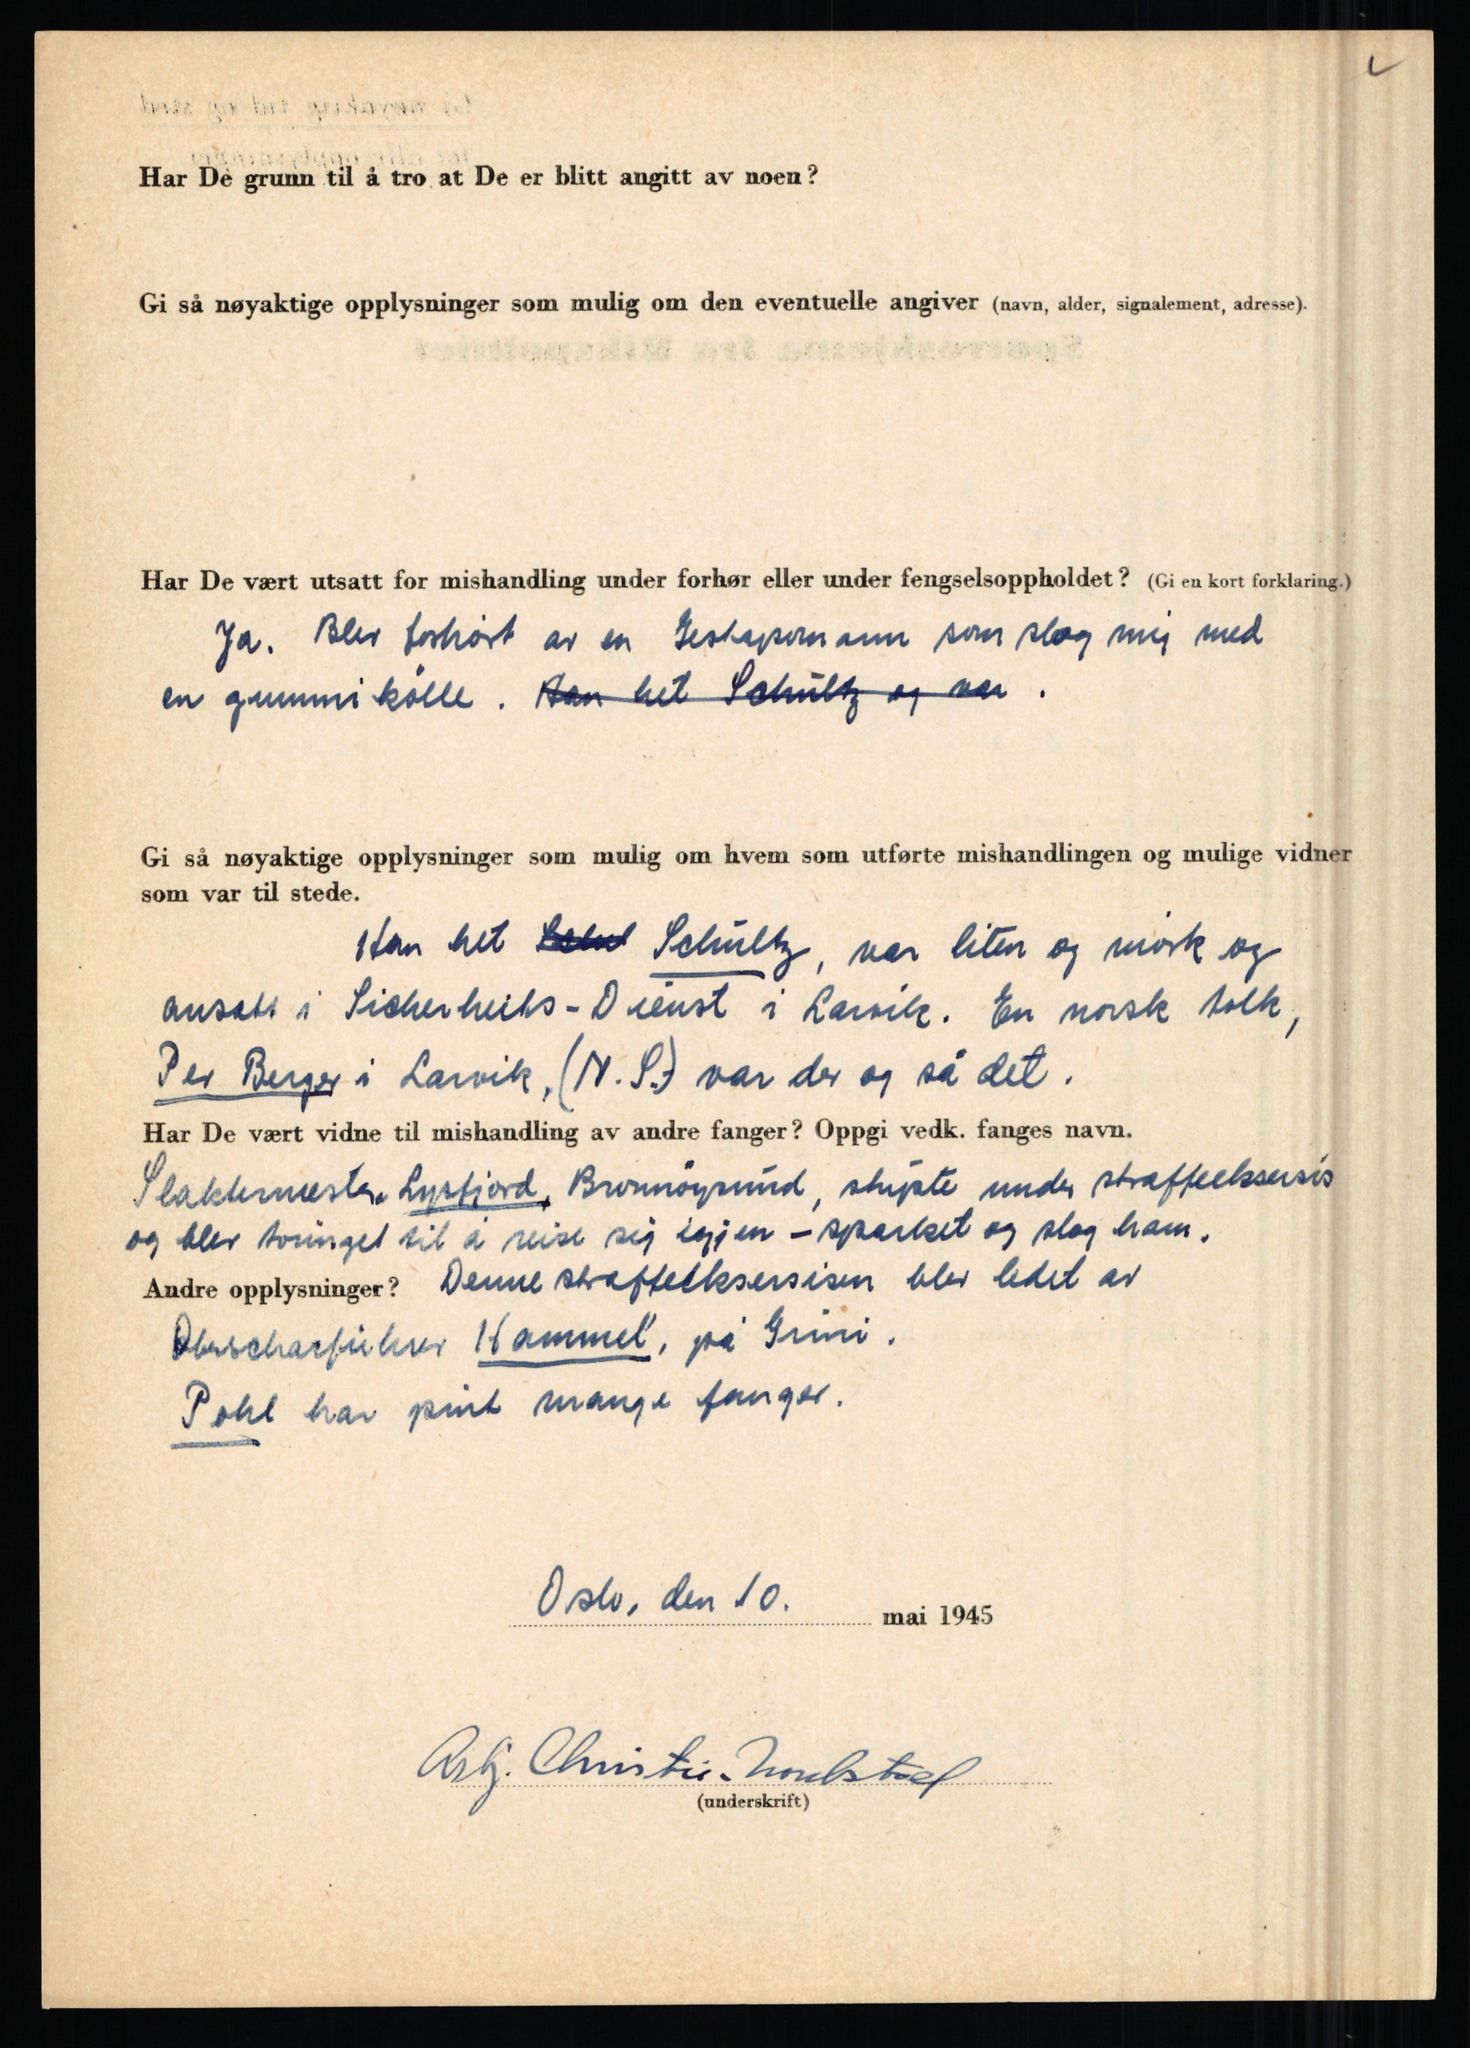 Har De grunn til å tro at De er blitt angitt av noen?
Gi så nøyaktige opplysninger som mulig om den eventuelle angiver (navn, alder, signalement, adresse).
Har De vært utsatt for mishandling under forhør eller under fengselsoppholdet? (Gi en kort forklaring.)
Ja. Blev forhört av en Gestapomann som slog mig med
en gummikölle. Han het Schultz og var.
Gi så nøyaktige opplysninger som mulig om hvem som utførte mishandlingen og mulige vidner
som var til stede.
Han het Schul Schultz, var liten og mörk og
ansatt i Sicherheits-Dienst i Larvik. En norsk tolk,
Per Berger i Larvik, (N.S.) var der og så det.
Har De vært vidne til mishandling av andre fanger? Oppgi vedk. fanges navn.
Slaktermester Lysfjord, Brønnöysund, stupte under straffeeksersis
og blev tvinget til å reise sig igjen – sparket og slog ham.
Andre opplysninger? Denne straffeeksersisen blev ledet av
Oberscharführer Hammel, på Grini.
Pohl har pint mange fanger.
Oslo, den 10. mai 1945
Asbj. Christie-
(underskrift)